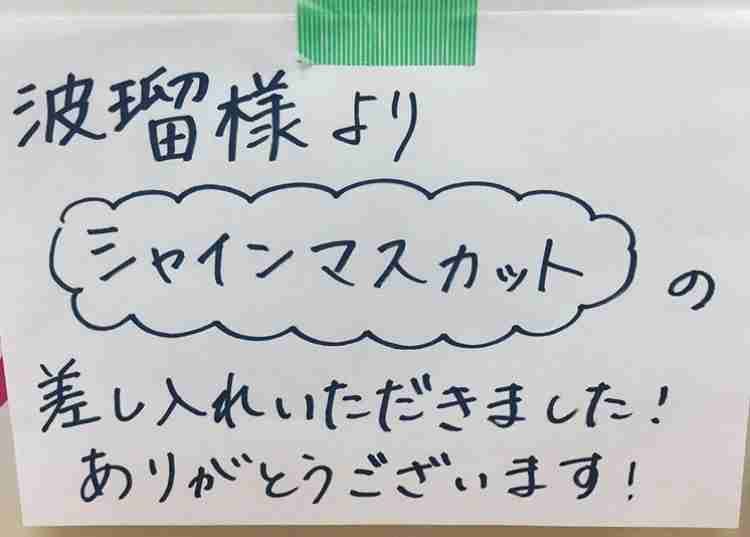 波瑠様より
シャインマスカットの
差し入れいただきました!
ありがとうございます!